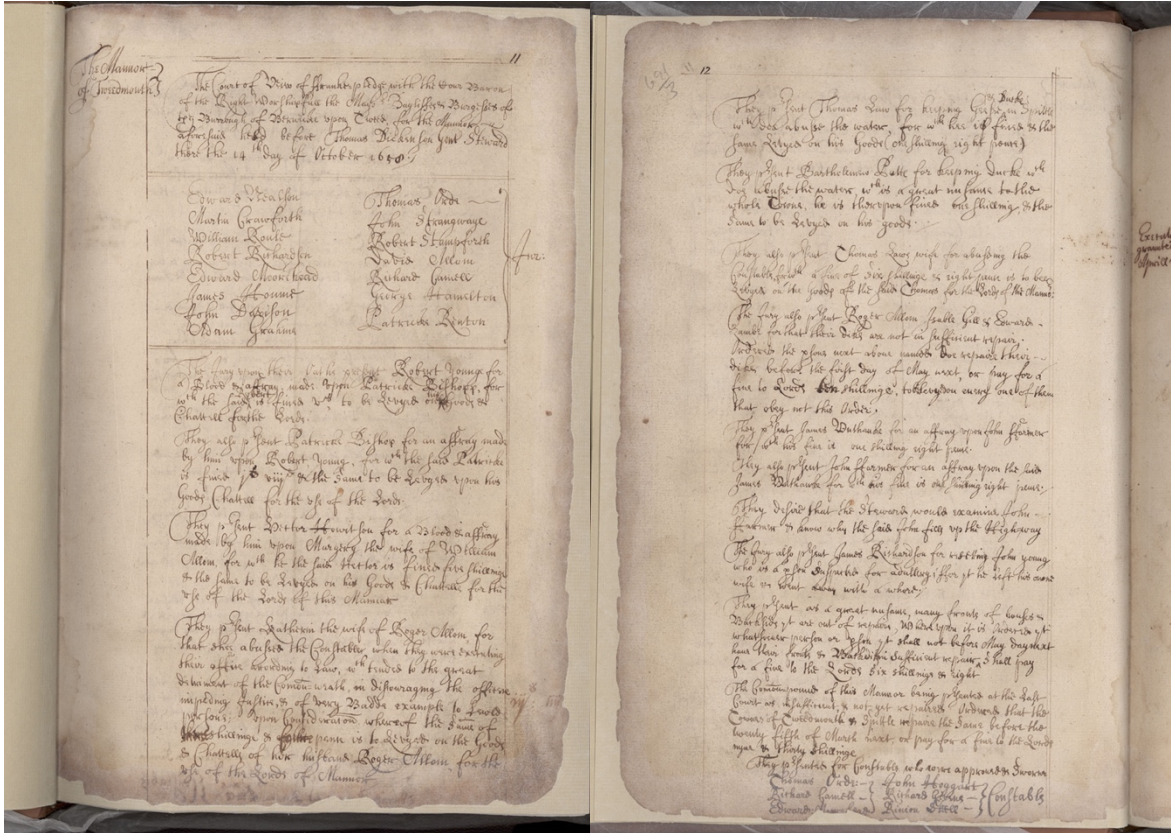 11
The Mannor
of Tweedmouth
The Court of View of ffrankepledge with the Cour Baron
of the Right Worshipfull the Maior Bayliffes & Burgesses of
the Burrough of Berwicke upon Tweed, for the Mannor
aforesaid held before Thomas Dickenson gent Steward
there the 14th day of October 1658
Edward Nealson
Martin Crawforth
William Roule
Robert Richardson
Edward Moorehead
James Houme
John Davison
Adam Grahme
Thomas Orde
John Strangwaye
Robert Stampforth
David Allom
Richard Gamell
George Hamelton
Patricke Renton
Jur:
The Jury upon their Oaths present Robert Younge for
a Blood & affray made upon Patricke Bishopp, for
wch the said Robert is fined to be Levyed on his Goods &
Chattell for the Lords.
They also psent Patricke Bishop for an affray made
by him upon Robert Young, for wch the said Patricke
is fined viijd & the same to be Levyed upon his
Goods Chattell for the vse of the Lords
They psent Hector Hewitson for a Blood & affray
made by him upon Margery the wife of William
Allom, for wch he the said Hector is fined five shillings
& the same to be Levyed on his Goods & Chattells for the
vse of the Lords of this Mannor
They psent Katherin the wife of Roger Allom for
that shee abused the Constables when they were executing
their office according to Law, wch tendes to the great
detriment of the Common-wealth, in discouraging the officers
impeding Justice, & of very Badde example to lewd
persons: Upon Consideration whereof the Sume of
shillings & pence is to Levyed on the Goods
& Chattells of her husband Roger Allom for the
vse of the Lords of Mannor
12
They psent Thomas Law for keeping Geese & Ducks in Spittle
wch doe abuse the water, for wch hee is fined & the
same Levyed on his Goods (one shilling eight pence)
They psent Bartholomew for keeping Ducks wch
doe abuse the water, wch is a great nusance to the
whole Towne, he is thereupon fined one shilling, & the
same to be Levyed on his goods.
They also psent Thomas Laws wife for abusing the
Constable, for wch a fine of six shillings & eight pence is to bee
Levyed on the Goods of the said Thomas for the Lords of the Mannor
The Jury also psent Roger Allom Isable Gill & Edward
for that their dikes are not in sufficient repair.
Ordered the psons next above named doe repaire their
dikes before the first day of May next, or pay for a
fine to Lords ten shillings, to bee upon every one of them
that obey not this Order.
They psent James for an affray upon John ffarmer
for wch his fine is one shilling eight pence.
They also psent John ffarmer for an affray upon the said
James for wch his fine is one shilling eight pence.
They desire that the Steward would examine John
ffarmer & know why the said John fills vp the Highway
The Jury also psent James Richardson for reseting John young
who is a pson suspected for adultery for yt he left his owne
wife & went away with a whore.
They psent as a great nusance, many fronts of houses &
Backsides yt are out of repaire, Whereupon it is Ordered yt
whatsoever person or psons yt shall not before May day next
have their fronts & Backsides in sufficient repaire, shall pay
for a fine to the Lords six shillings & eight
The Common pound of this Mannor being psented at the Last
Court as insufficient, & not yet repaired, Ordered that the
Townes of Tweedmouth & Spittle repaire the same before the
twenty fifth of March next, or pay for a fine to the Lords
nyne & thirty shillings
They psented for Constables who were approved & Sworne
Thomas Orde
Richard Gamell
Edward
John Hoggart
Richard
Ninion
Constables